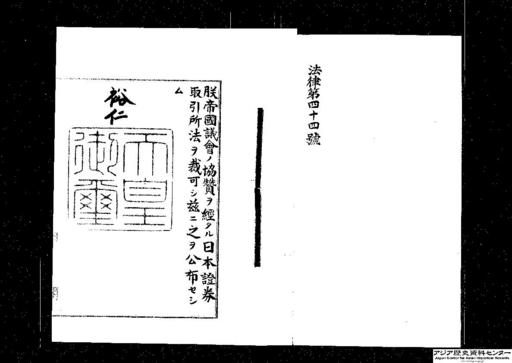 法律第四十四號
朕帝國議會ノ協贊ヲ經タル日本證券
取引所法ヲ裁可シ茲ニ之ヲ公布セシ
ム
裕仁
天皇
御璽
アジア歴史資料センター
Japan Center for Asian Historical Records